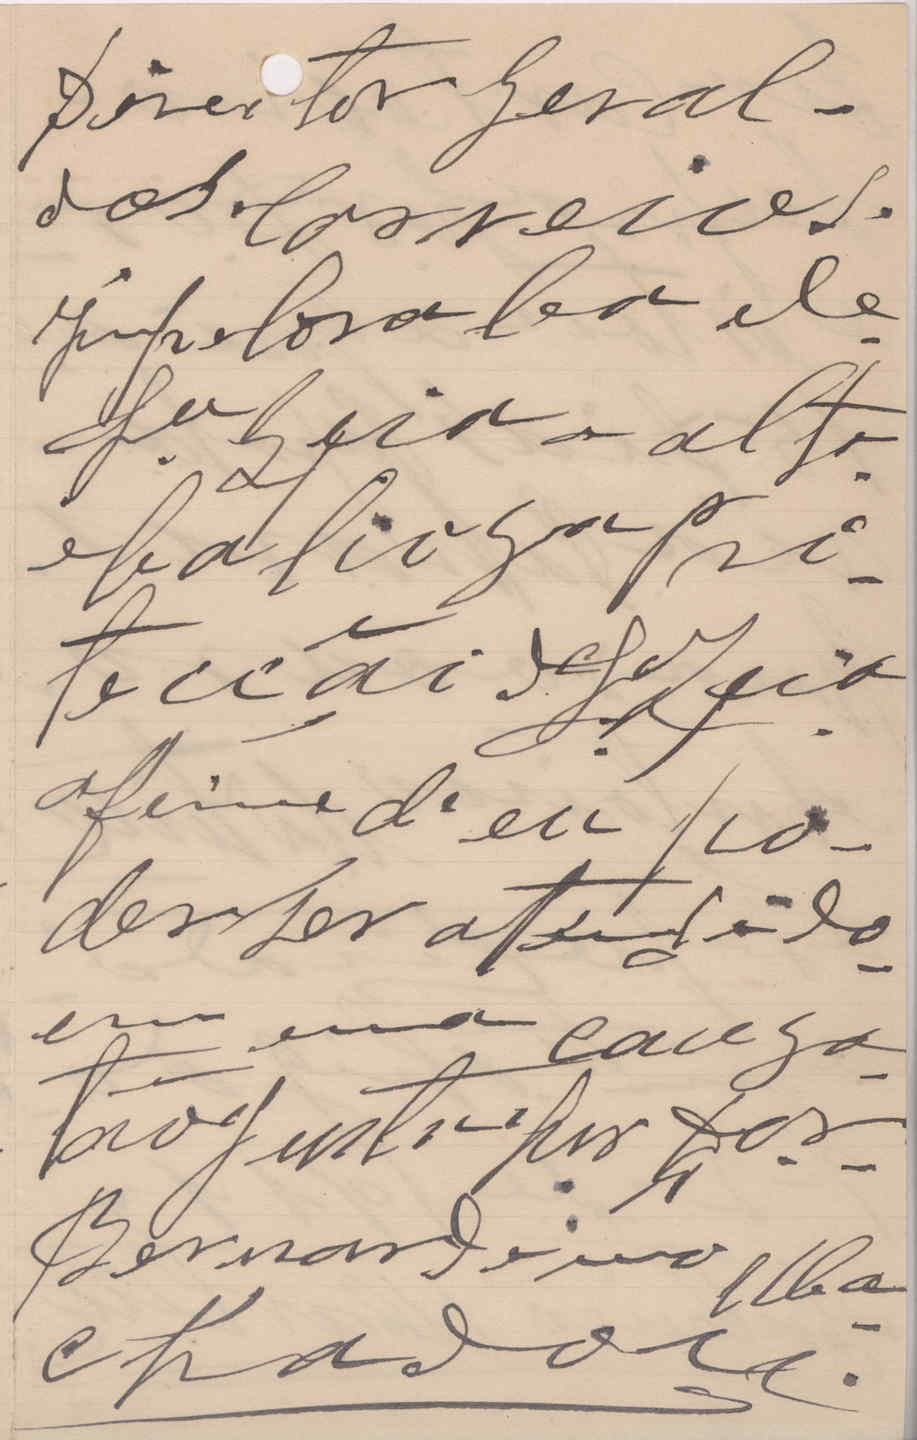 Director Geral
dos Correios.
Impelora la de
Sª. Exciª o alto
e balioza pro-
tecção de Sª. Exciª
afim de eu po-
der ser atendido
em uma cauza
tão justa por Dor.
Bernardino Ma-
chado